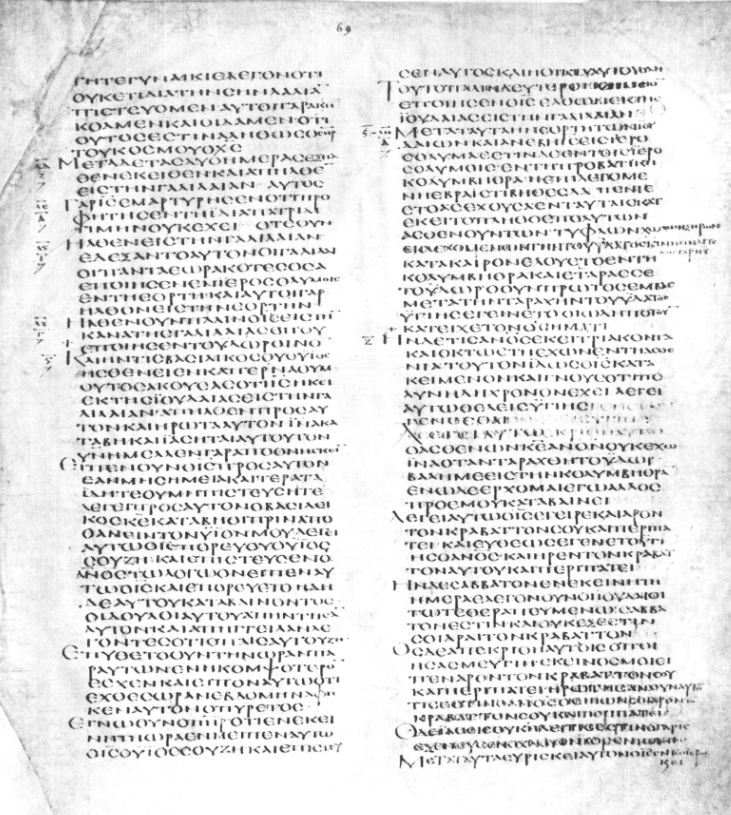 69
ΓΗΤΕΓΥΝΑΙΚΙΕΛΕΓΟΝΟΤΙ
ΟΥΚΕΤΙΔΙΑΤΗΝCΗΝΛΑΛΙΑ
ΠΙCΤΕΥΟΜΕΝΑΥΤΟΙΓΑΡΑΚΗ
ΚΟΑΜΕΝΚΑΙΟΙΔΑΜΕΝΟΤΙ
ΟΥΤΟCΕCΤΙΝΑΛΗΘΩCΟCΗΡ
ΤΟΥΚΟCΜΟΥΟΧC
ΜΕΤΑΔΕΤΑCΔΥΟΗΜΕΡΑCΕΞΗΛ
ΘΕΝΕΚΕΙΘΕΝΚΑΙΑΠΗΛΘΕ
ΕΙCΤΗΝΓΑΛΙΛΑΙΑΝ ΑΥΤΟC
ΓΑΡΙCΕΜΑΡΤΥΡΗCΕΝΟΤΙΠΡΟ
ΦΗΤΗCΕΝΤΗΙΔΙΑΠΑΤΡΙΔΙ
ΤΙΜΗΝΟΥΚΕΧΕΙ ΟΤΕΟΥΝ
ΗΛΘΕΝΕΙCΤΗΝΓΑΛΙΛΑΙΑΝ
ΕΔΕΞΑΝΤΟΑΥΤΟΝΟΙΓΑΛΙΛΑΙ
ΟΙΠΑΝΤΑΕΩΡΑΚΟΤΕCΟCΑ
ΕΠΟΙΗCΕΝΕΝΙΕΡΟCΟΛΥΜΟΙC
ΕΝΤΗΕΟΡΤΗΚΑΙΑΥΤΟΙΓΑΡ
ΗΛΘΟΝΕΙCΤΗΝΕΟΡΤΗΝ
ΗΛΘΕΝΟΥΝΠΑΛΙΝΟΙCΕΙCΤΗ
ΚΑΝΑΤΗCΓΑΛΙΛΑΙΑCΟΠΟΥ
ΕΠΟΙΗCΕΝΤΟΥΔΩΡΟΙΝΟ
ΚΑΙΗΝΤΙCΒΑCΙΛΙΚΟCΟΥΟΥΙΟC
ΗCΘΕΝΕΙΕΝΚΑΠΕΡΝΑΟΥΜ
ΟΥΤΟCΑΚΟΥCΑCΟΤΙΙCΗΚΕΙ
ΕΚΤΗCΙΟΥΔΑΙΑCΕΙCΤΗΝΓΑ
ΛΙΛΑΙΑΝΑΠΗΛΘΕΝΠΡΟCΑΥ
ΤΟΝΚΑΙΗΡΩΤΑΑΥΤΟΝΙΝΑΚΑ
ΤΑΒΗΚΑΙΙΑCΗΤΑΙΑΥΤΟΥΤΟΝ
ΥΝΗΜΕΛΛΕΝΓΑΡΑΠΟΘΝΗCΚΕΙ
ΕΙΠΕΝΟΥΝΟΙCΠΡΟCΑΥΤΟΝ
ΕΑΝΜΗCΗΜΕΙΑΚΑΙΤΕΡΑΤΑ
ΙΔΗΤΕΟΥΜΗΠΙCΤΕΥCΗΤΕ
ΛΕΓΕΙΠΡΟCΑΥΤΟΝΟΒΑCΙΛΕΙ
ΚΟCΚΕΚΑΤΑΒΗΘΙΠΡΙΝΑΠΟ
ΘΑΝΕΙΝΤΟΝΥΙΟΝΜΟΥΛΕΓΕΙ
ΑΥΤΩΟΙCΠΟΡΕΥΟΥΟΥΙΟC
CΟΥΖΗ ΚΑΙΕΠΙCΤΕΥCΕΝΟ
ΑΝΟCΤΩΛΟΓΩΟΝΕΙΠΕΝΑΥ
ΤΩΟΙCΚΑΙΕΠΟΡΕΥΕΤΟΗΔΗ
ΔΕΑΥΤΟΥΚΑΤΑΒΑΙΝΟΝΤΟC
ΟΙΔΟΥΛΟΙΑΥΤΟΥΑΠΗΝΤΗCΑ
ΑΥΤΟΝΚΑΙΑΠΗΓΓΕΙΛΑΝΛΕ
ΓΟΝΤΕCΟΤΙΟΠΑΙCΑΥΤΟΥΖΗ
ΕΠΥΘΕΤΟΟΥΝΤΗΝΩΡΑΝΠΑ
ΡΑΥΤΩΝΕΝΗΚΟΜΨΟΤΕΡΟ
ΕCΧΕΝΚΑΙΕΙΠΟΝΑΥΤΩΟΤΙ
ΕΧΘΕCΩΡΑΝΕΒΔΟΜΗΝΑΦΗ
ΚΕΝΑΥΤΟΝΟΠΥΡΕΤΟC
ΕΓΝΩΟΥΝΟΠΗΡΟΤΙΕΝΕΚΕΙ
ΝΗΤΗΩΡΑΕΝΗΕΙΠΕΝΑΥΤΩ
ΟΙCΟΥΙΟCCΟΥΖΗΚΑΙΕΠΙCΤΕΥ
CΕΝΑΥΤΟCΚΑΙΗΟΙΚΙΑΑΥΤΟΥΟΛΗ
ΤΟΥΤΟΠΑΛΙΝΔΕΥΤΕΡΟΝCΗΜΕΙΟ
ΕΠΟΙΗCΕΝΟΙCΕΛΘΩΝΕΚΤΗC
ΙΟΥΔΑΙΑCΕΙCΤΗΝΓΑΛΙΛΑΙΑΝ
ΜΕΤΑΤΑΥΤΑΗΝΕΟΡΤΗΤΩΝΙΟΥ
ΔΑΙΩΝΚΑΙΑΝΕΒΗΙCΕΙCΙΕΡΟ
CΟΛΥΜΑΕCΤΙΝΔΕΕΝΤΟΙCΙΕΡΟ
CΟΛΥΜΟΙCΕΠΙΤΗΠΡΟΒΑΤΙΚΗ
ΚΟΛΥΜΒΗΘΡΑΗΕΠΙΛΕΓΟΜΕ
ΝΗΕΒΡΑΙCΤΙΒΗΘΕCΔΑΠΕΝΤΕ
CΤΟΑCΕΧΟΥCΑΕΝΤΑΥΤΑΙCΚΑΤ
ΕΚΕΙΤΟΠΛΗΘΟCΠΟΛΥΤΩΝ
ΑCΘΕΝΟΥΝΤΩΝΤΥΦΛΩΝΧΩΛΩΝΞΗΡΩΝ
ΚΑΤΑΚΑΙΡΟΝΕΛΟΥΕΤΟΕΝΤΗ
ΚΟΛΥΜΒΗΘΡΑΚΑΙΕΤΑΡΑCCΕ
ΤΟΥΔΩΡΟΟΥΝΠΡΩΤΟCΕΜΒΑC
ΜΕΤΑΤΗΝΤΑΡΑΧΗΝΤΟΥΥΔΑΤΟC
ΥΓΙΗCΕΓΙΝΕΤΟΟΙΩΔΗΠΟΤΟΥ
ΚΑΤΕΙΧΕΤΟΝΟCΗΜΑΤΙ
ΗΝΔΕΤΙCΑΝΟCΕΚΕΙΤΡΙΑΚΟΝΤΑ
ΚΑΙΟΚΤΩΕΤΗΕΧΩΝΕΝΤΗΑCΘΕ
ΝΙΑΤΟΥΤΟΝΙΔΩΟΙCΚΑΤΑ
ΚΕΙΜΕΝΟΝΚΑΙΓΝΟΥCΟΤΙΠΟ
ΛΥΝΗΔΗΧΡΟΝΟΝΕΧΕΙΛΕΓΕΙ
ΑΥΤΩΘΕΛΕΙCΥΓΙΗCΓΕΝ
ΟΑCΘΕΝΩΝΚΕΑΝΟΝΟΥΚΕΧΩ
ΙΝΑΟΤΑΝΤΑΡΑΧΘΗΤΟΥΔΩΡ
ΒΑΛΗΜΕΕΙCΤΗΝΚΟΛΥΜΒΗΘΡΑ
ΕΝΩΔΕΕΡΧΟΜΑΙΕΓΩΑΛΛΟC
ΠΡΟΕΜΟΥΚΑΤΑΒΑΙΝΕΙ
ΛΕΓΕΙΑΥΤΩΟΙCΕΓΕΙΡΕΚΑΙΑΡΟΝ
ΤΟΝΚΡΑΒΑΤΤΟΝCΟΥΚΑΙΠΕΡΙΠΑ
ΤΕΙ ΚΑΙΕΥΘΕΩCΕΓΕΝΕΤΟΥΓΙ
ΗCΟΑΝΟCΚΑΙΗΡΕΝΤΟΝΚΡΑΒΑΤ
ΤΟΝΑΥΤΟΥΚΑΙΠΕΡΙΠΑΤΕΙ
ΗΝΔΕCΑΒΒΑΤΟΝΕΝΕΚΕΙΝΗΤΗ
ΗΜΕΡΑΕΛΕΓΟΝΟΥΝΟΙΙΟΥΔΑΙΟΙ
ΤΩΤΕΘΕΡΑΠΕΥΜΕΝΩCΑΒΒΑ
ΤΟΝΕCΤΙΝΚΑΙΟΥΚΕΞΕCΤΙΝ
CΟΙΑΡΑΙΤΟΝΚΡΑΒΑΤΤΟΝ
ΟCΔΕΑΠΕΚΡΙΘΗΑΥΤΟΙCΟΠΟΙ
ΗCΑCΜΕΥΓΙΗΕΚΕΙΝΟCΜΟΙΕΙ
ΠΕΝΑΡΟΝΤΟΝΚΡΑΒΑΤΤΟΝCΟΥ
ΚΑΙΠΕΡΙΠΑΤΕΙΗΡΩΤΗCΑΝΟΥΝΑΥΤΟ
ΤΙCΕCΤΙΝΟΑΝΟCΟΕΙΠΩΝCΟΙΑΡΟΝΤΟ
ΚΡΑΒΑΤΤΟΝCΟΥΚΑΙΠΕΡΙΠΑΤΕΙ
ΟΔΕΙΑΘΕΙCΟΥΚΗΔΕΙΤΙCΕCΤΙΝΟΓΑΡΙC
ΜΕΤΑΤΑΥΤΑΕΥΡΙCΚΕΙΑΥΤΟΝΟΙCΕΝΤΩΙΕΡΩ